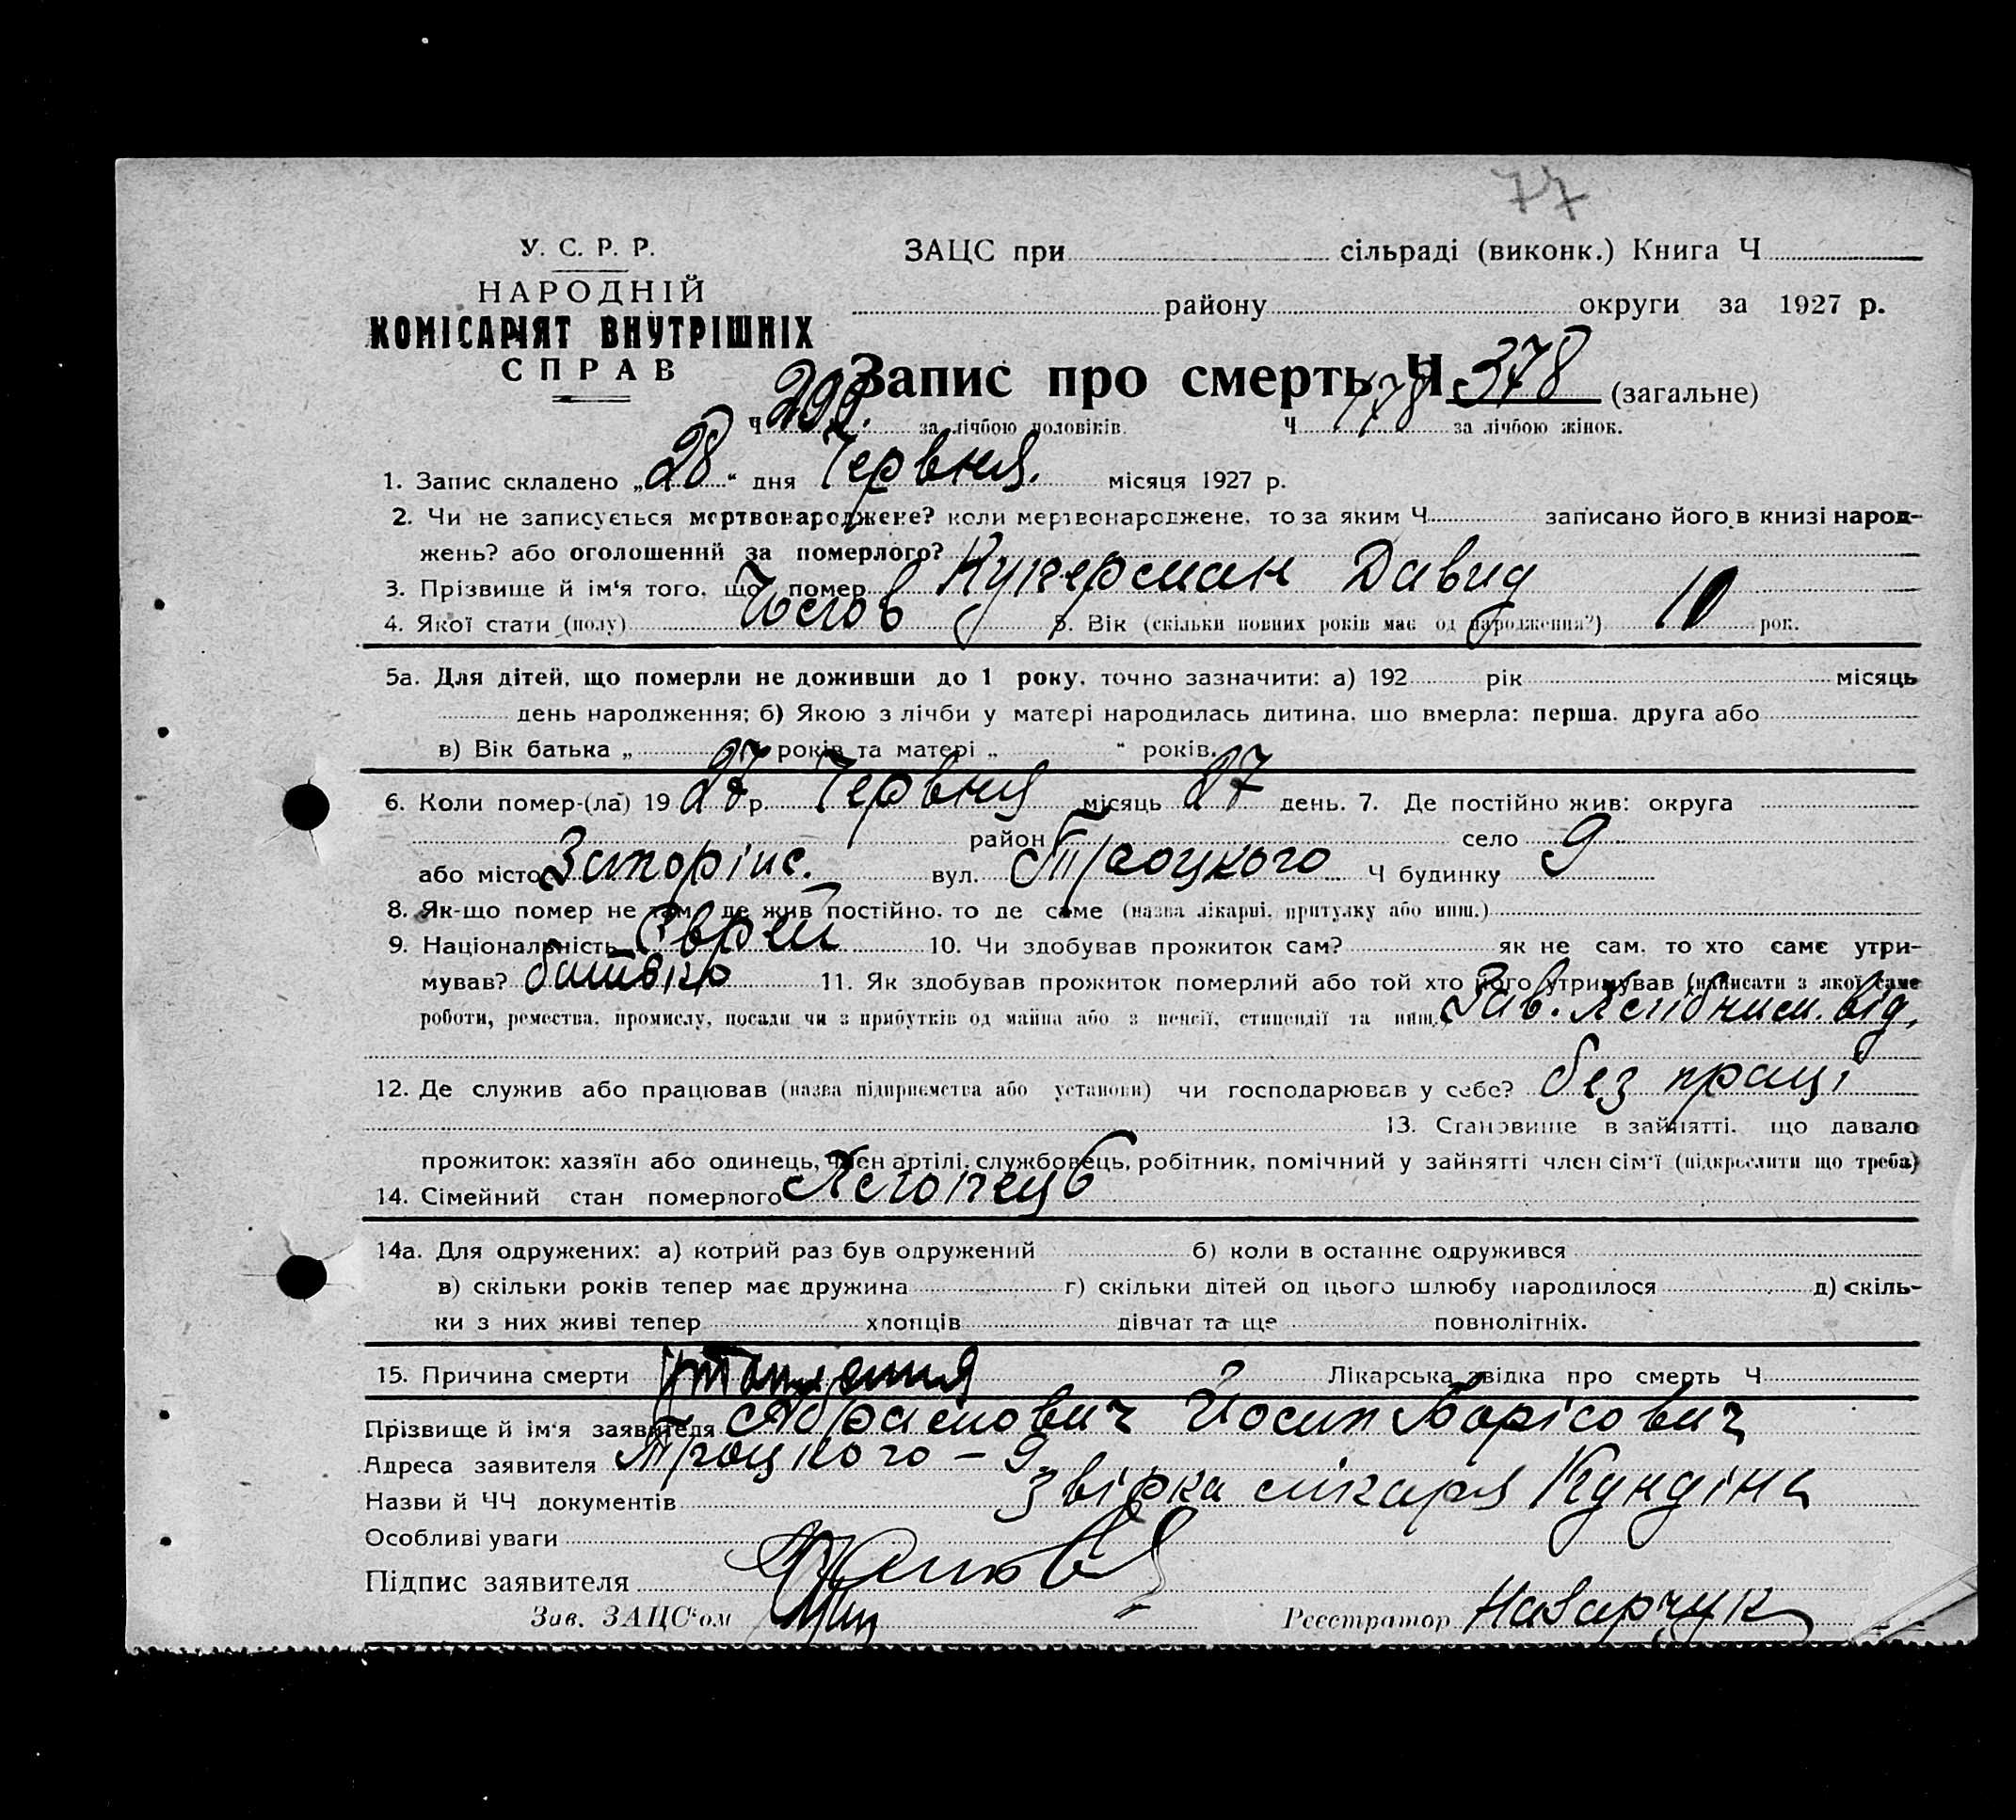 77
У. С. Р. Р.
НАРОДНІЙ
КОМІСАРІЯТ ВНУТРІШНІХ
СПРАВ
ЗАЦС при сільраді (виконк.) Книга Ч
району округи за 1927 р.
Запис про смерть Ч 378 (загальне)
Ч за лічбою чоловіків. Ч 178 за лічбою жінок.
1. Запис складено „28“ дня Червня. місяця 1927 р.
2. Чи не записується мертвонароджене? коли мертвонароджене, то за яким Ч. записано його в книзі народ-
жень? або оголошений за померлого?
3. Прізвище й ім'я того, що помер Куперман Давид
4. Якої стати (полу) Чолов 5. Вік (скільки повних років має од народження?) 10 рок.
5а. Для дітей, що померли не доживши до 1 року, точно зазначити: а) 192 рік місяць
день народження; б) Якою з лічби у матері народилась дитина, що вмерла: перша, друга або
в) Вік батька „ “ років та матері „ “ років.
6. Коли помер-(ла) 1927 р. Червня місяць 27 день. 7. Де постійно жив: округа
район село
або місто Запоріж. вул. Троцького Ч будинку 9
8. Як-що помер не там, де жив постійно, то де саме (назва лікарні, притулку або инш.)
9. Національність Єврей 10. Чи здобував прожиток сам? як не сам, то хто саме утри-
мував? батько 11. Як здобував прожиток померлий або той хто його утримував (написати з якої саме
роботи, ремества, промислу, посади чи з прибутків од майна або з пенсії, стипендії та инш.) Зав. від.
12. Де служив або працював (назва підприємства або установи) чи господарював у себе? без праці
13. Становище в зайнятті, що давало
прожиток: хазяїн або одинець, член артілі, службовець, робітник, помічний у зайнятті член сім'ї (підкреслити що треба)
14. Сімейний стан померлого Хлопець
14а. Для одружених: а) котрий раз був одружений б) коли в останнє одружився
в) скільки років тепер має дружина г) скільки дітей од цього шлюбу народилося д) скіль-
ки з них живі тепер хлопців дівчат та ще повнолітніх.
15. Причина смерти Лікарська звідка про смерть Ч
Прізвище й ім'я заявителя Абрамович Йосип Борісович
Адреса заявителя Троцького – 9
Назви й ЧЧ документів Звірка лікаря Кундіна
Особливі уваги
Підпис заявителя
Зав. ЗАЦС'ом Реєстратор Назарчук